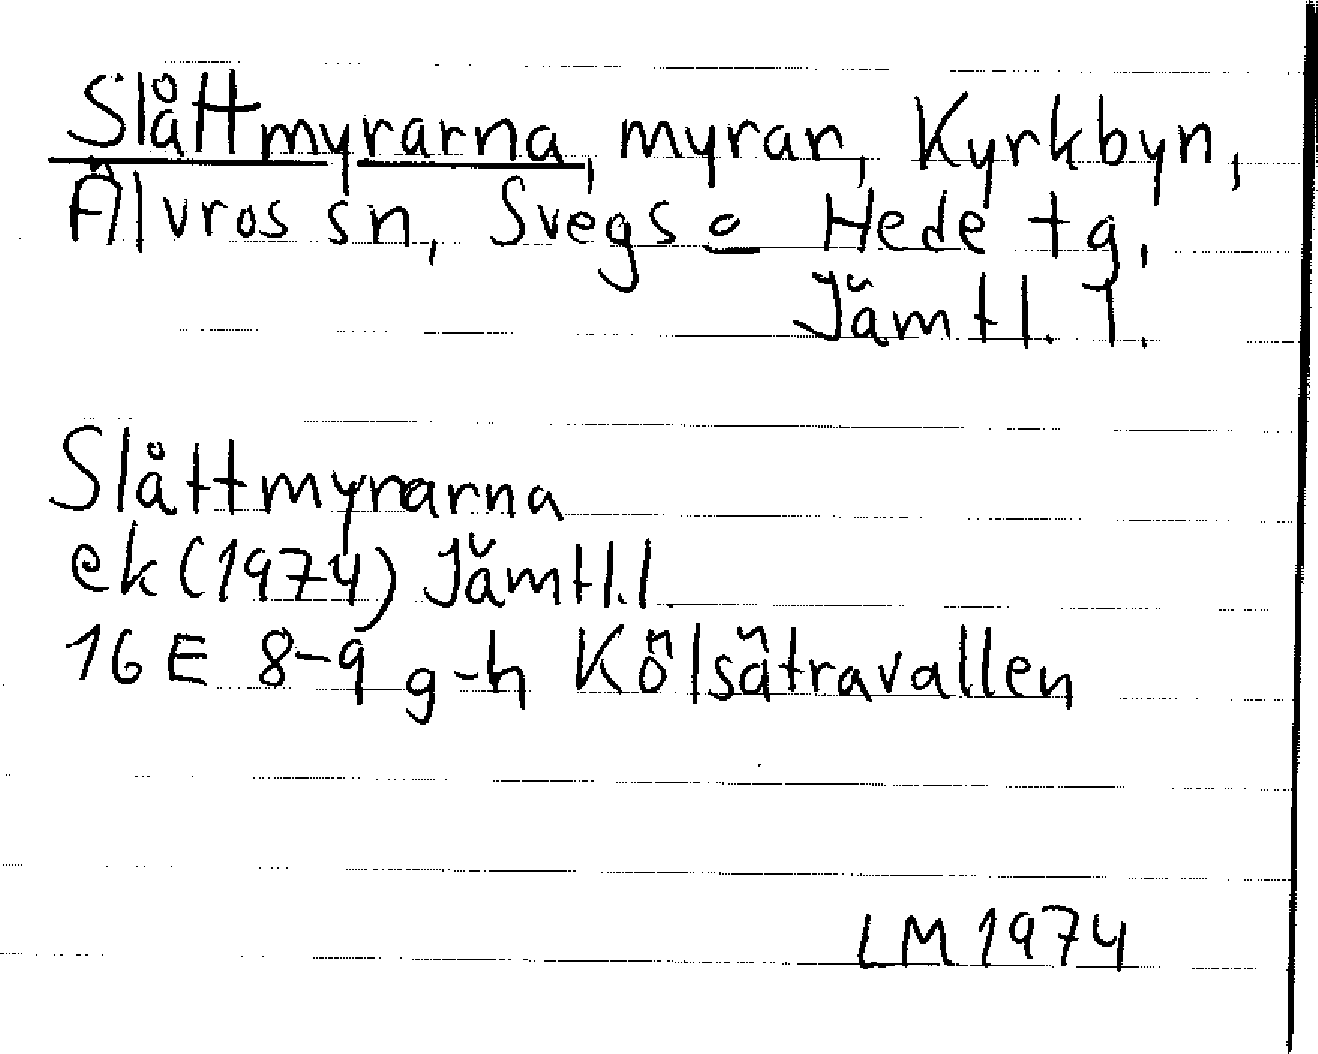 Slåttmyrarna, myrar, Kyrkbyn,
Älvros sn, Svegs o Hede tg,
Jämtl. l.
Slåttmyrarna
ek (1974) Jämtl. l.
16 E 8-9 g-h Kölsätravallen
LM 1974